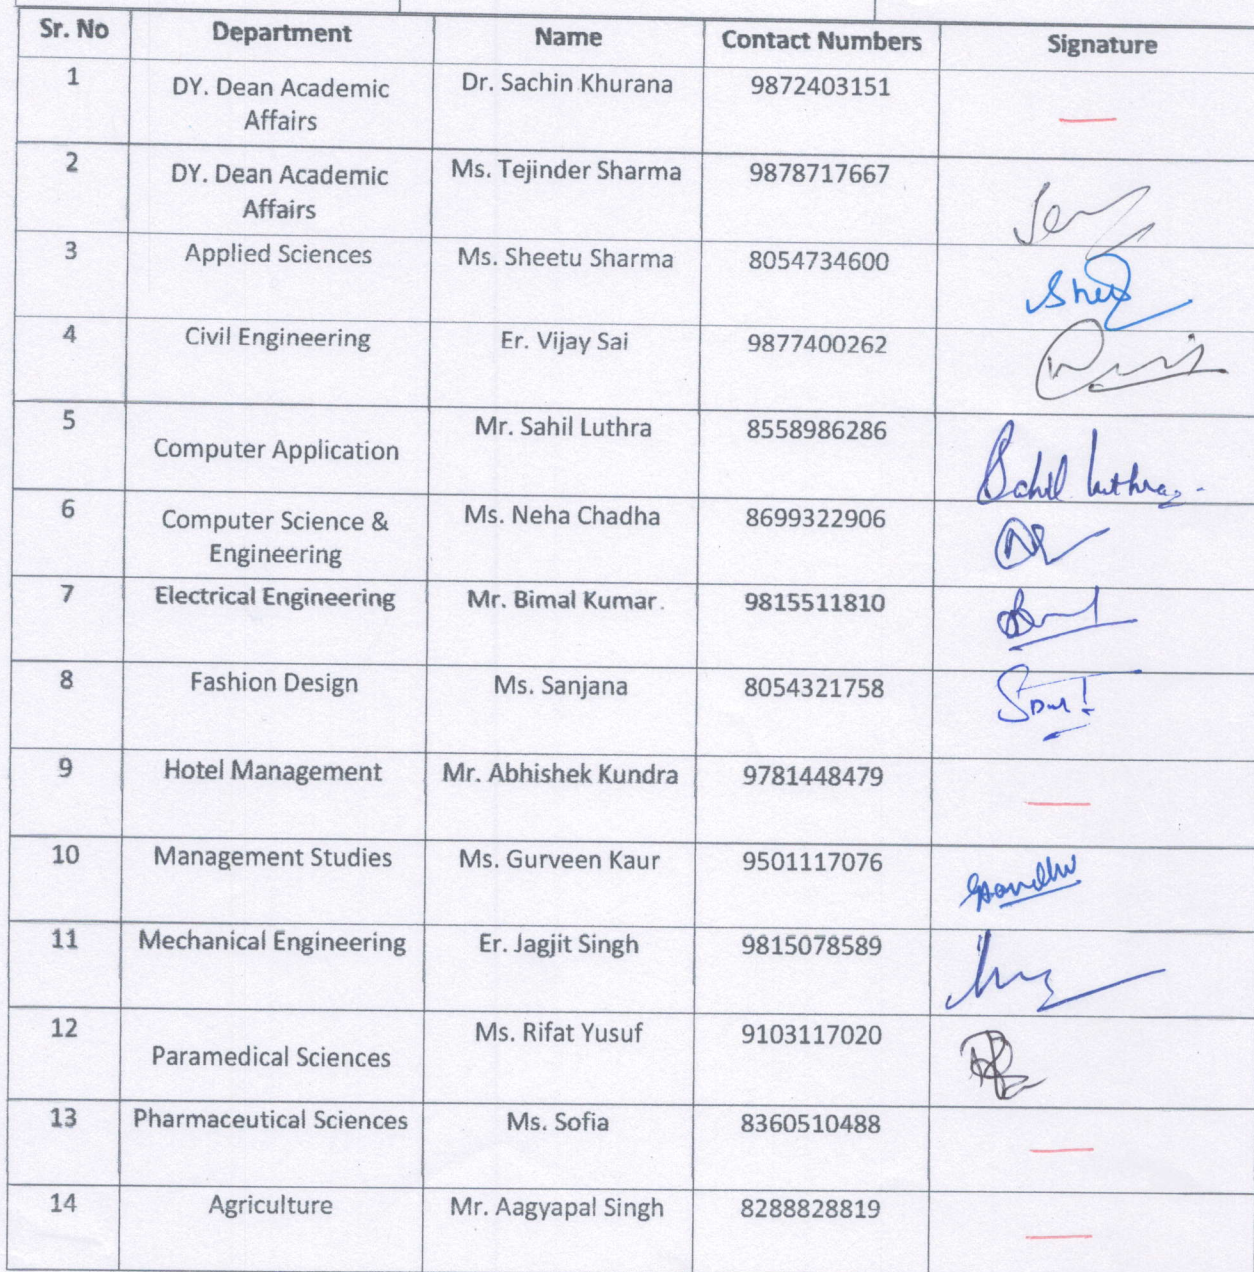 Sr. No Department Name Contact Numbers Signature
1 DY. Dean Academic Dr. Sachin Khurana 9872403151
Affairs
2 DY. Dean Academic Ms. Tejinder Sharma 9878717667
Affairs
3 Applied Sciences Ms. Sheetu Sharma 8054734600
4 Civil Engineering Er. Vijay Sai 9877400262
5 Computer Application Mr. Sahil Luthra 8558986286 Sahil Luthra
6 Computer Science & Ms. Neha Chadha 8699322906
Engineering
7 Electrical Engineering Mr. Bimal Kumar. 9815511810
8 Fashion Design Ms. Sanjana 8054321758
9 Hotel Management Mr. Abhishek Kundra 9781448479
10 Management Studies Ms. Gurveen Kaur 9501117076
11 Mechanical Engineering Er. Jagjit Singh 9815078589
12 Paramedical Sciences Ms. Rifat Yusuf 9103117020
13 Pharmaceutical Sciences Ms. Sofia 8360510488
14 Agriculture Mr. Aagyapal Singh 8288828819